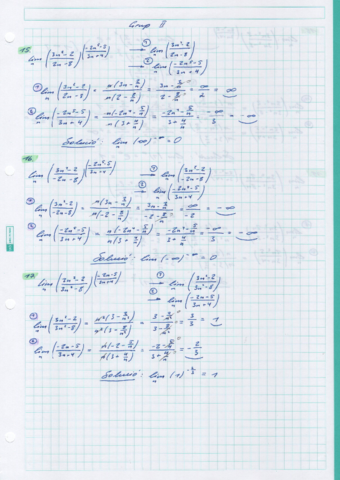 Grup II
15. lim n (3n²-2 / 2n-8)^(-2n²-5 / 3n+4) → ① lim n (3n²-2 / 2n-8)
→ ② lim n (-2n²-5 / 3n+4)
① lim n (3n²-2 / 2n-8) = n(3n-2/n) / n(2-8/n) = 3n-2/n / 2-8/n = ∞/2 = ∞
② lim n (-2n²-5 / 3n+4) = n(-2n-5/n) / n(3+4/n) = -2n-5/n / 3+4/n = -∞/3 = -∞
Solució: lim n (∞)^-∞ = 0
16. lim n (3n²-2 / -2n-8)^(-2n²-5 / 3n+4) → ① lim n (3n²-2 / -2n-8)
→ ② lim n (-2n²-5 / 3n+4)
① lim n (3n²-2 / -2n-8) = n(3n-2/n) / n(-2-8/n) = 3n-2/n / -2-8/n = ∞/-2 = -∞
② lim n (-2n²-5 / 3n+4) = n(-2n-5/n) / n(3+4/n) = -2n-5/n / 3+4/n = -∞/3 = -∞
Solució: lim n (-∞)^-∞ = 0
17. lim n (3n²-2 / 3n²-8)^(-2n-5 / 3n+4) → ① lim n (3n²-2 / 3n²-8)
→ ② lim n (-2n-5 / 3n+4)
① lim n (3n²-2 / 3n²-8) = n²(3-2/n²) / n²(3-8/n²) = 3-2/n² / 3-8/n² = 3/3 = 1
② lim n (-2n-5 / 3n+4) = n(-2-5/n) / n(3+4/n) = -2-5/n / 3+4/n = -2/3
Solució: lim n (1)^-2/3 = 1